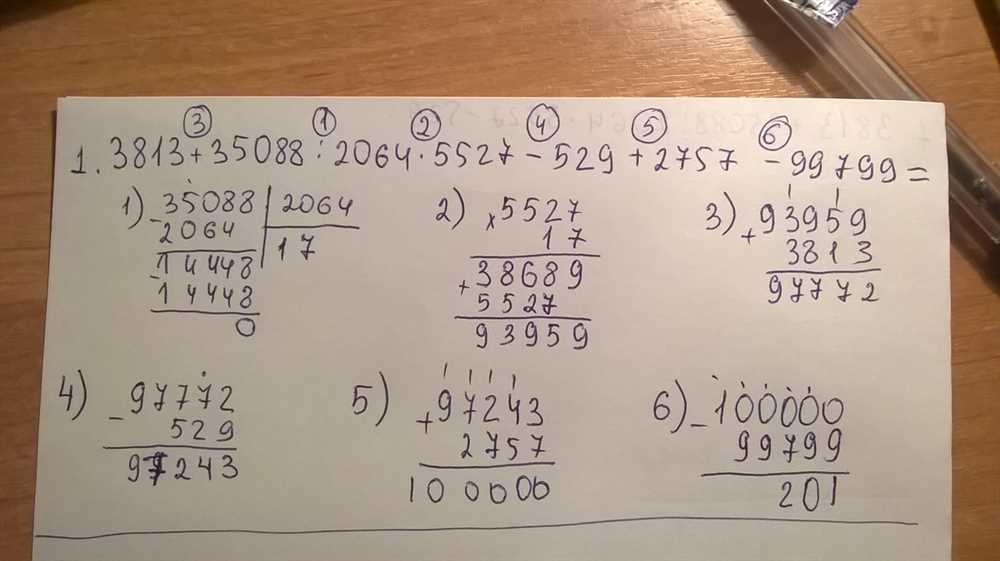 ③ ① ② ④ ⑤ ⑥
1. 3813 + 35088 : 2064 · 5527 - 529 + 2757 - 99799 =
1) - 35088 | 2064
2064 | 17
- 14448
14448
0
2) x 5527
17
+ 38689
5527
93959
3) + 93959
3813
97772
4) - 97772
529
97243
5) + 97243
2757
100000
6) - 100000
99799
201